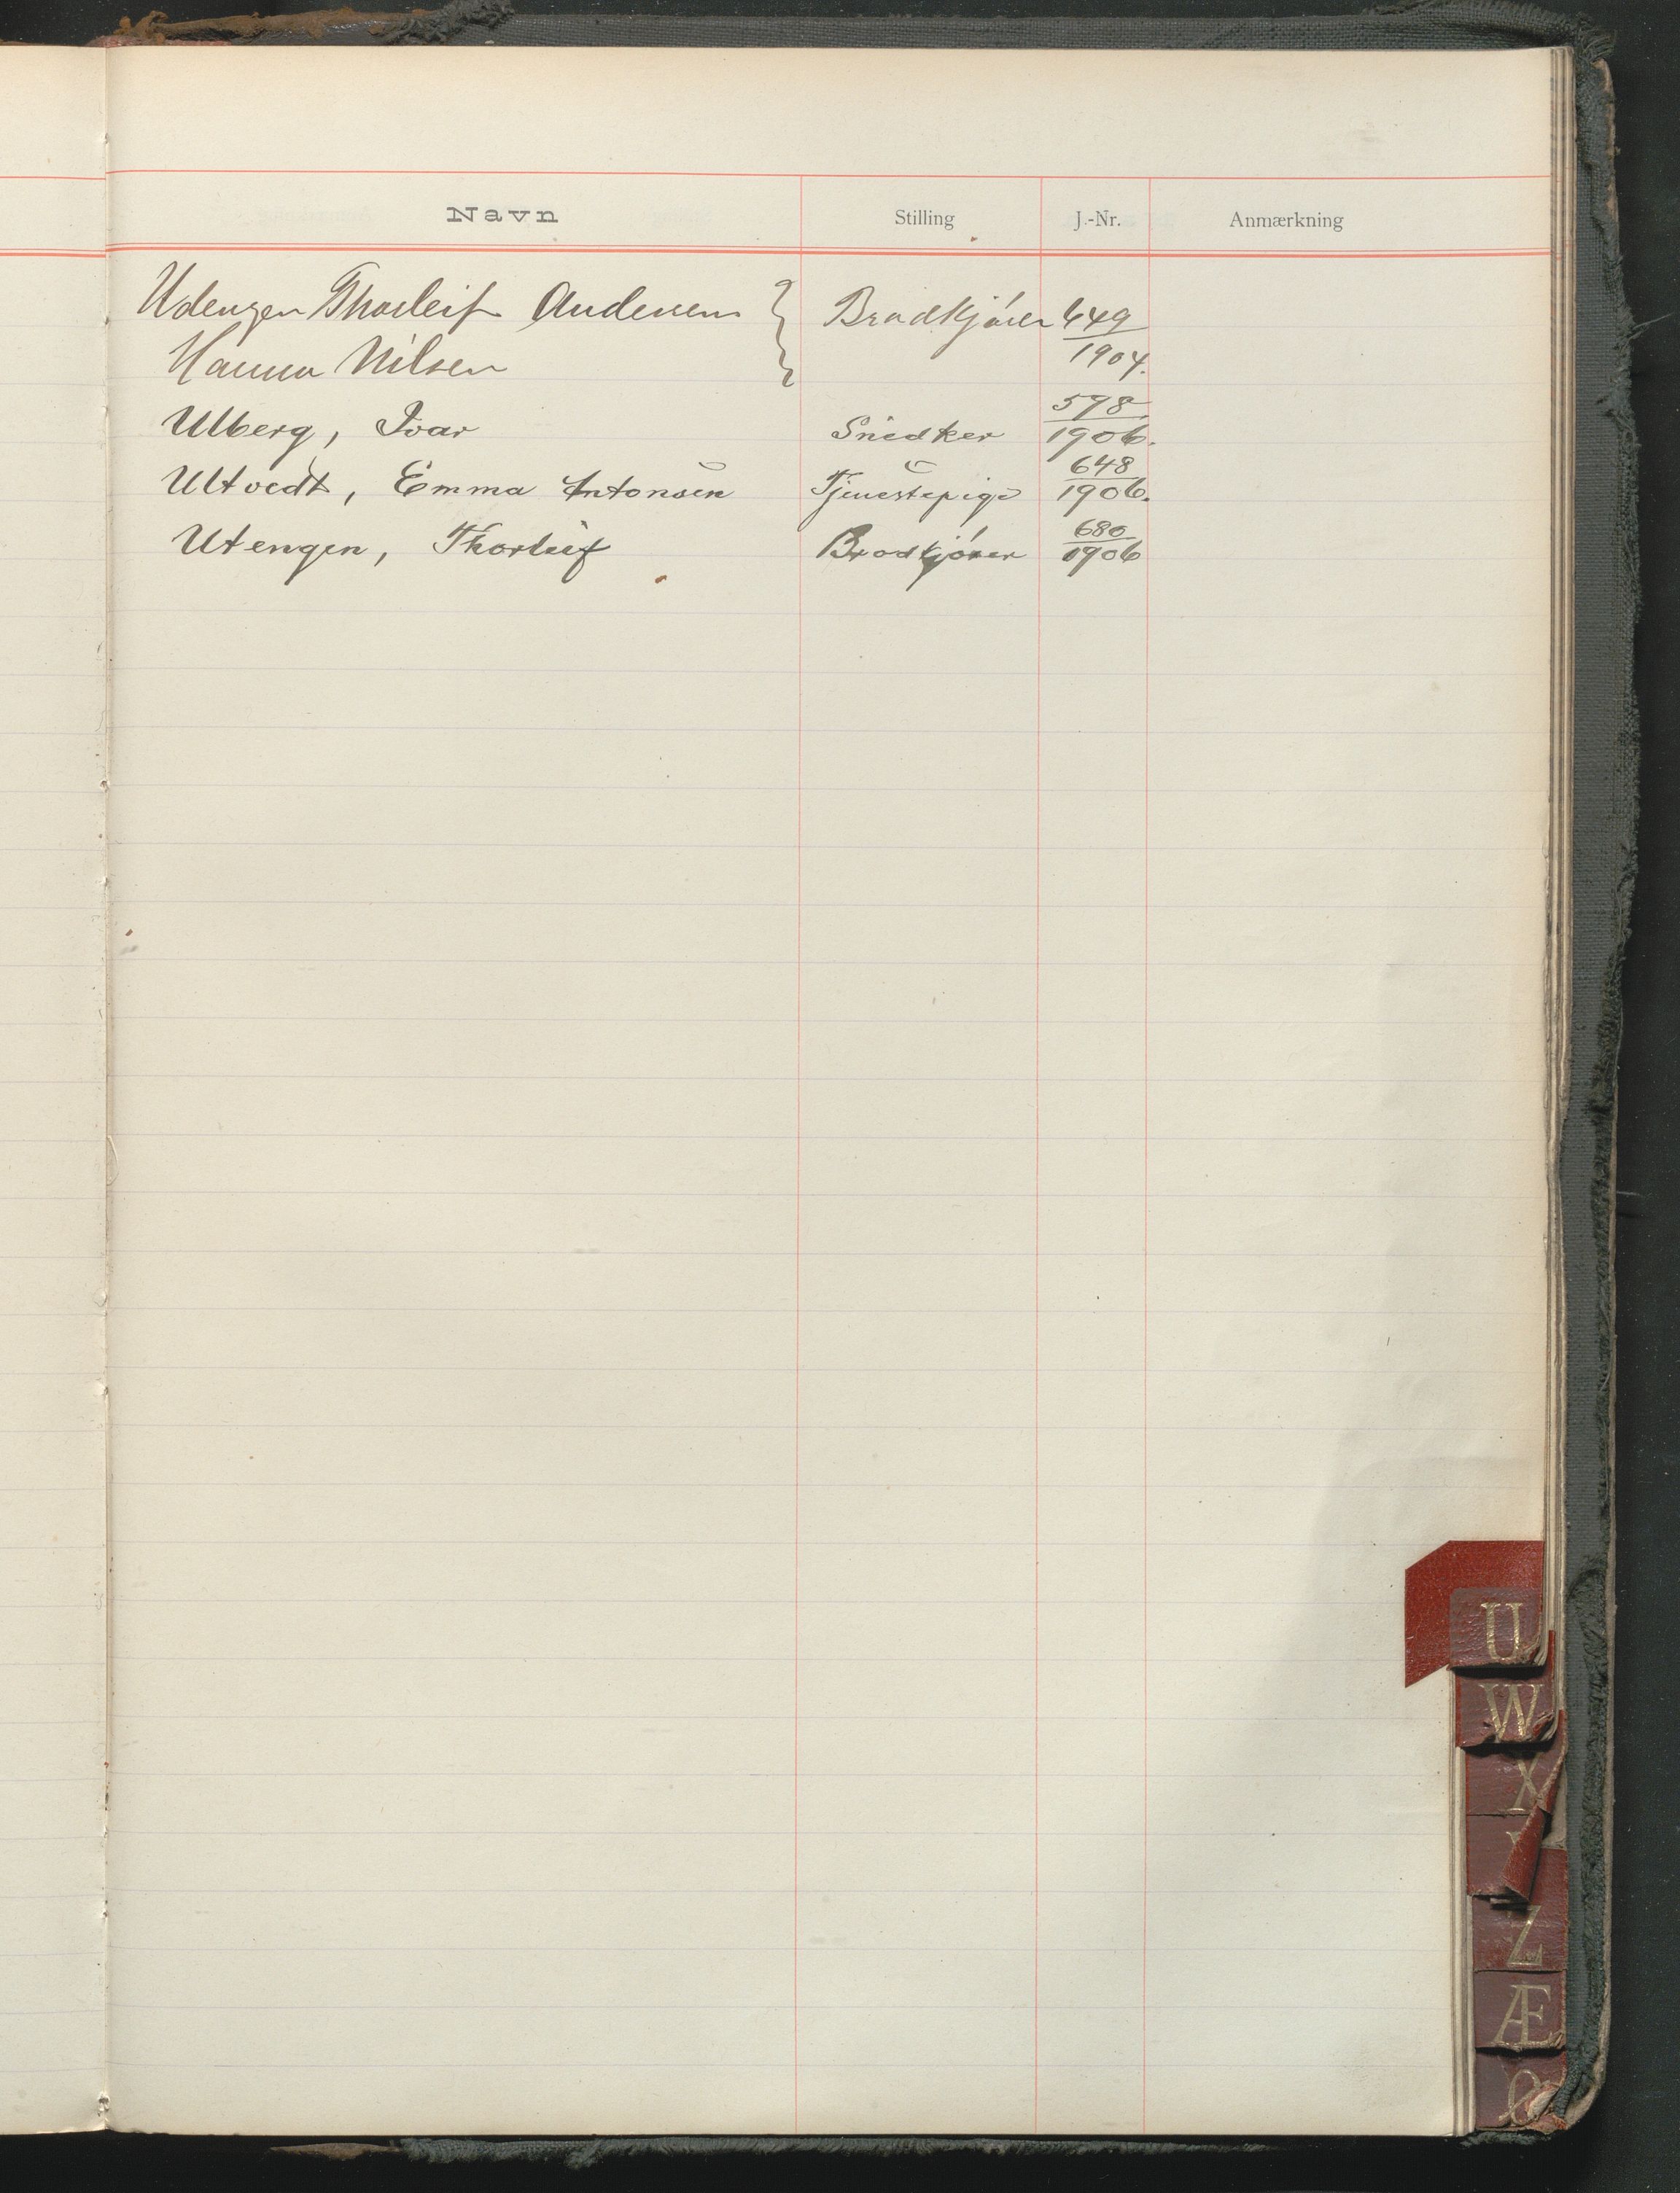 Navn Stilling J.-Nr. Anmærkning
Udengen Thorleif Andersen } Brødkjører 649
Hanna Nilsen 1904.
598
Ulberg, Ivar Snedker 1906.
648
Ultvedt, Emma Antonsen Tjenestepige 1906.
680
Utengen, Thorleif Brødkjører 1906
U
W
X
Z
Æ
Ø